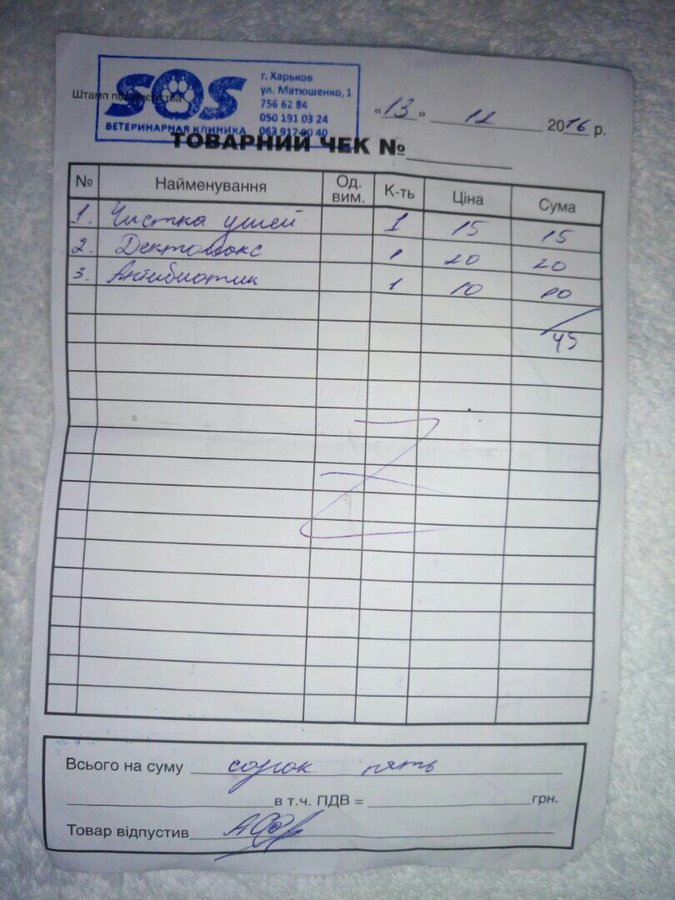 Штамп підприємства
SOS
ВЕТЕРИНАРНАЯ КЛИНИКА
г. Харьков
ул. Матюшенко, 1
756 62 84
050 191 03 24
063 917 90 40
«13» 12 2016 р.
ТОВАРНИЙ ЧЕК №
№ Найменування Од. вим. К-ть Ціна Сума
1. Чистка ушей 1 15 15
2. Дектомакс 1 20 20
3. Антибиотик 1 10 10
45
Всього на суму сорок пять
в т.ч. ПДВ = грн.
Товар відпустив